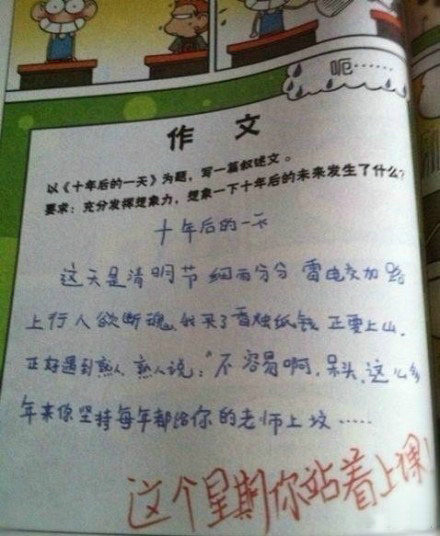 呃……
作文
以《十年后的一天》为题，写一篇叙述文。
要求：充分发挥想象力，想象一下十年后的未来发生了什么？
十年后的一天
这天是清明节 细雨分分 雷电交加 路
上行人欲断魂，我买了香烛纸钱 正要上山，
正好遇到熟人，熟人说：“不容易啊，呆头，这么多
年来你坚持每年都给你的老师上坟……
这个星期你站着上课！